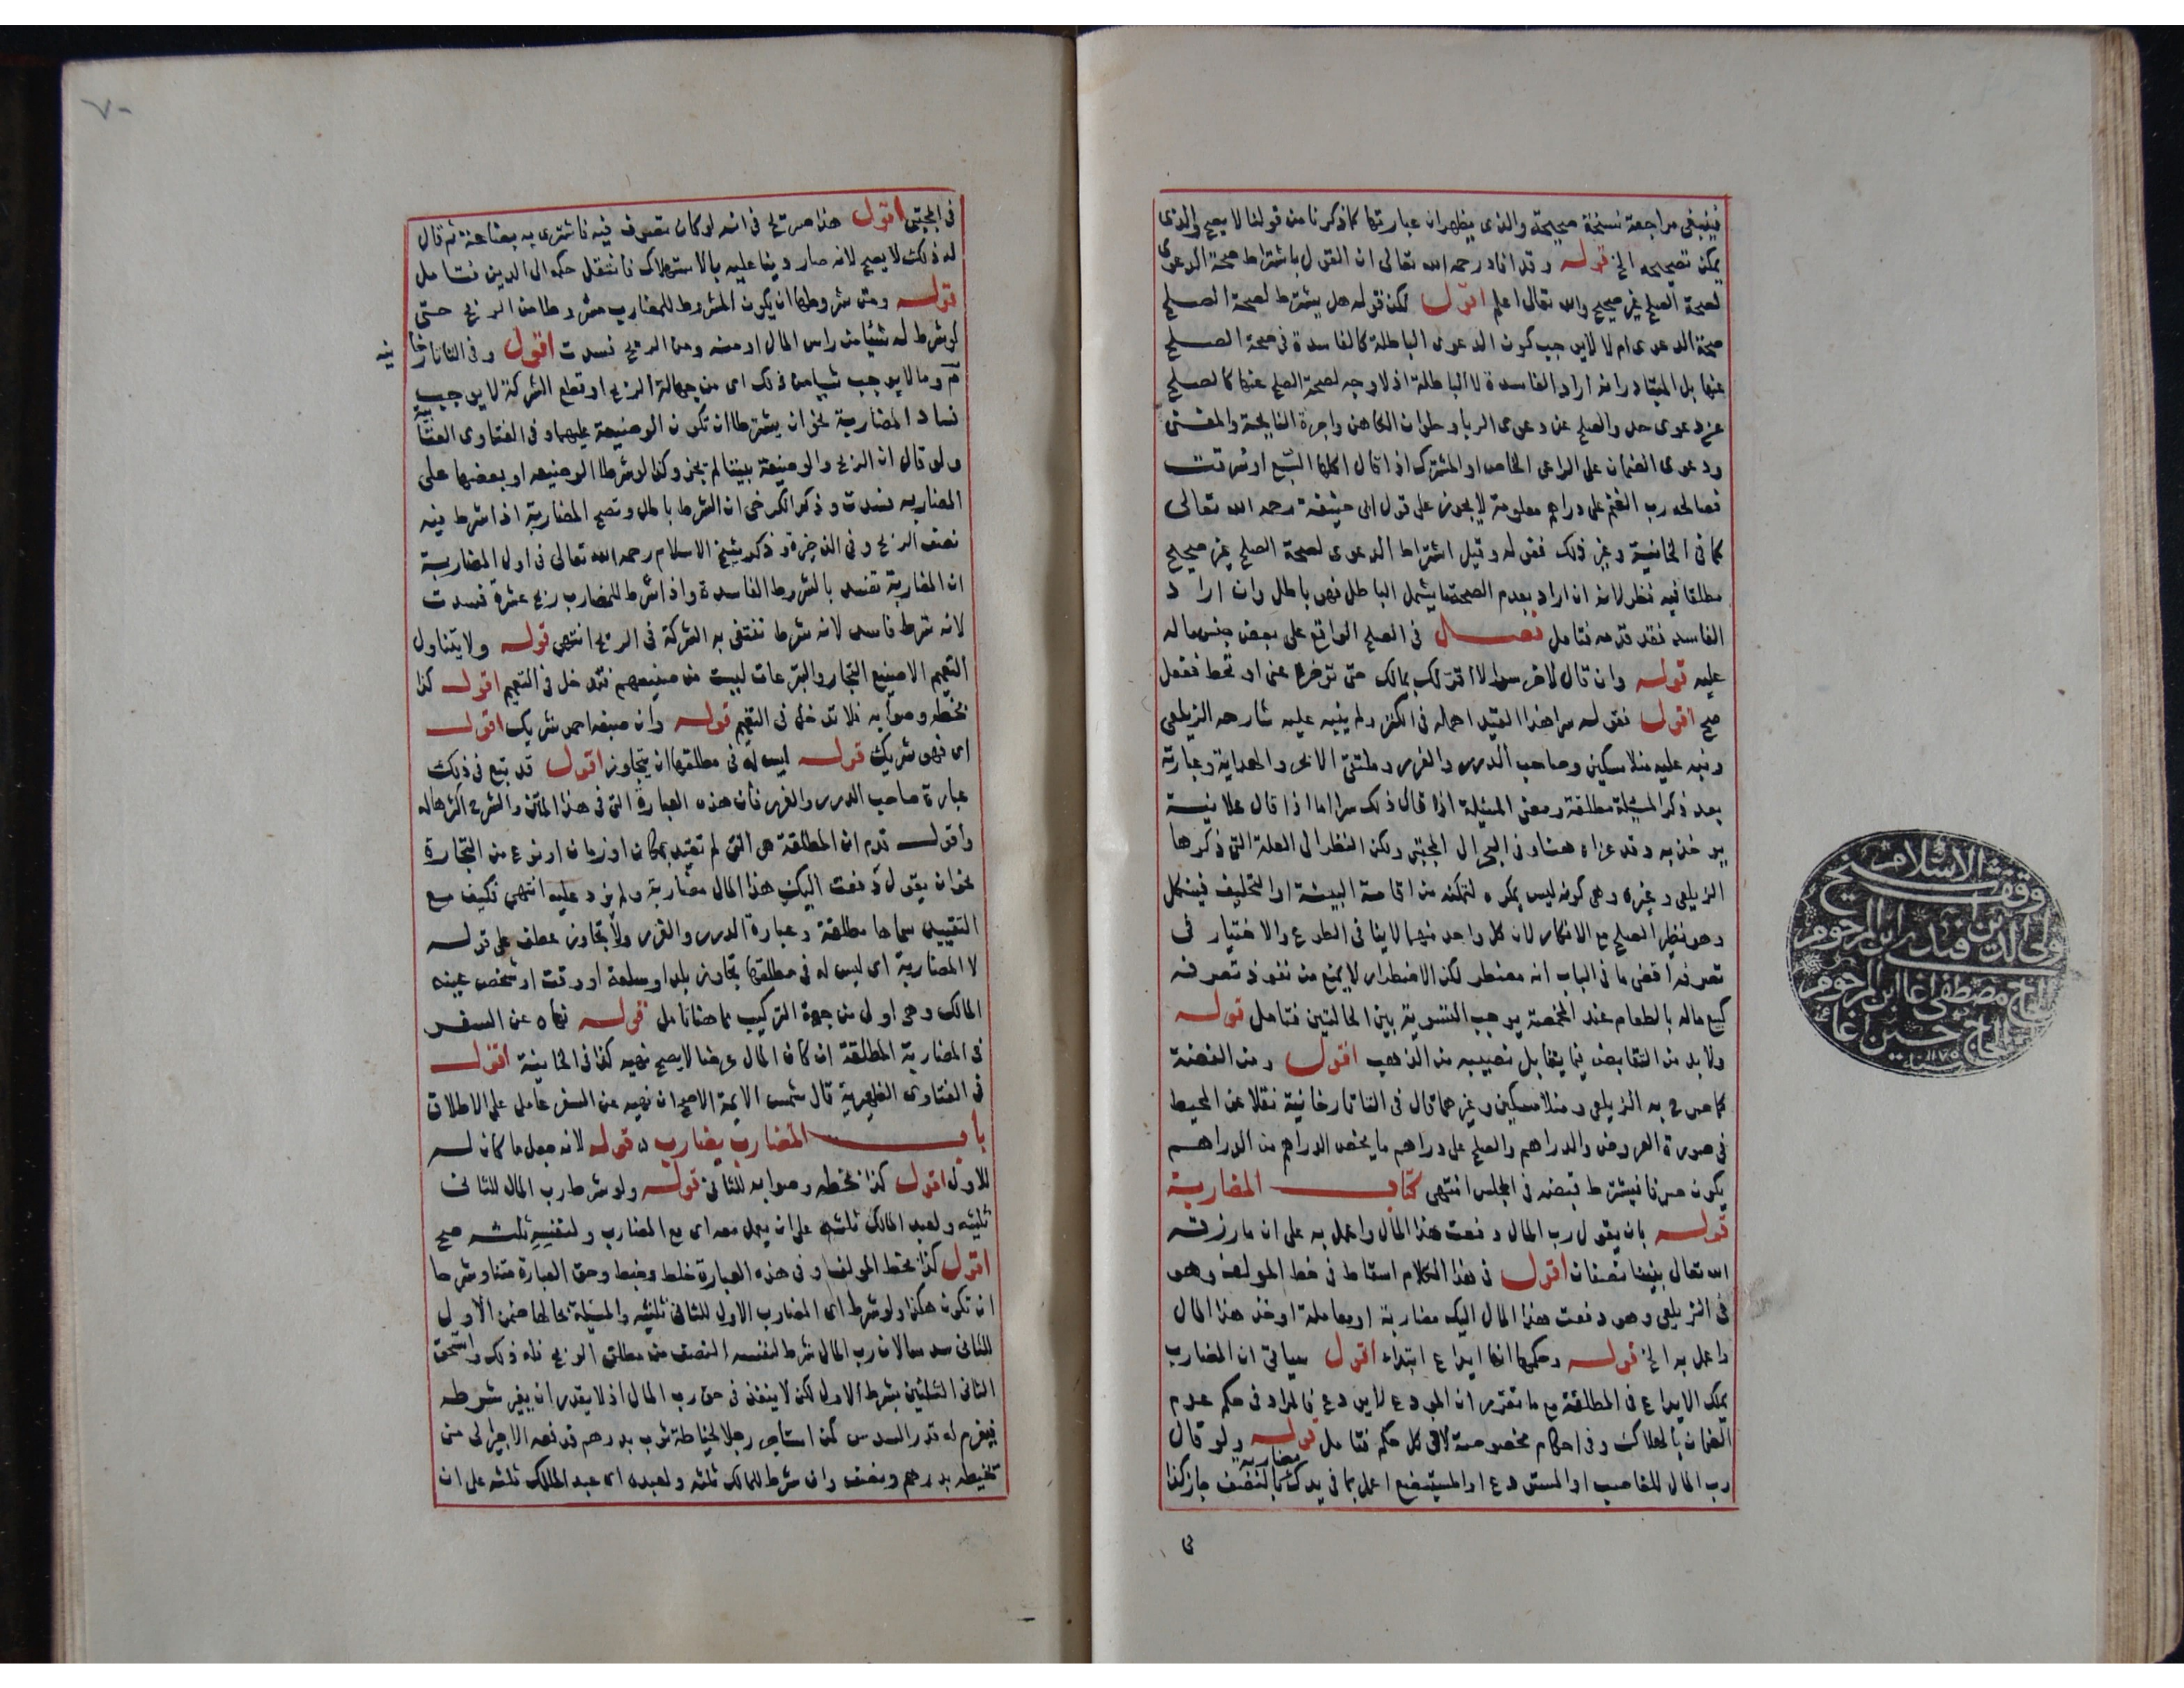 فينبغى مراجعة نسخة صحيحة والذى يظهر ان عبارتها كما ذكرنا من قولنا لا يصح والذى
يمكن تصحيحه الخ قوله وقد افاد رحمه الله تعالى ان القول باشتراط صحة الدعوى
لصحة الصلح غير صحيح والله تعالى اعلم اقول لكن قوله هل يشترط لصحة الصلح
صحة الدعوى ام لا لا يوجب كون الدعوى الباطلة كالفاسدة فى صحة الصلح
عنها بل المتبادر انه اراد الفاسدة لا الباطلة اذ لا وجه لصحة الصلح عنها كالصلح
عن دعوى حد والصلح عن دعوى الربا وحلوان الكاهن واجرة النايحة والمغنى
ودعوى الضمان على الراعى الخاص او المشترك اذا قال اكلها السبع او سرقت
فصالحه رب الغنم على دراهم معلومة لا يجوز على قول ابى حنيفة رحمه الله تعالى
كما فى الخانية وغير ذلك فقوله وقيل اشتراط الدعوى لصحة الصلح غير صحيح
مطلقا فيه نظر لانه ان اراد بعدم الصحة ما يشمل الباطل فهو باطل وان اراد
الفاسد فقد قدمه فتامل فصل فى الصلح الواقع على بعض جنس ماله
عليه قوله وان قال لاخر سرا لا اقر لك بمالك حتى تؤخره عنى او تحط ففعل
صح اقول فقوله سرا هذا القيد اهمله فى الكنز ولم ينبه عليه شارحه الزيلعى
ونبه عليه منلا مسكين وصاحب الدرر والغرر وملتقى الابحر والهداية وعبارته
بعد ذكر المسئلة مطلقة ومعنى المسئلة اذا قال ذلك سرا اما اذا قال علانية
يوخذ به وقد عزاه هنا وفى البحر الى المجتبى ولكن النظر الى العلة التى ذكرها
الزيلعى وغيره وهى كونه ليس بمكره لتمكنه من اقامة البينة او التحليف فينكل
وهو نظير الصلح مع الانكار لان كل واحد منهما لا ينافى الطوع والاختيار فى
تصرفه اقصى ما فى الباب انه مضطر لكن الاضطرار لا يمنع من نفوذ تصرفه
كبيع ماله بالطعام عند المخمصة يوجب التسوية بين الحالتين فتامل قوله
ولا بد من التقابض فيما يقابل نصيبه من الذهب اقول ومن الفضة
كما صرح به الزيلعى ومنلا مسكين وغيرهما قال فى التاتارخانية نقلا عن المحيط
فى صورة العروض والدراهم والصلح على دراهم ما يخص الدراهم من الدراهم
يكون صرفا فيشترط قبضه فى المجلس انتهى كتاب المضاربة
قوله بان يقول رب المال دفعت هذا المال واعمل به على ان ما رزق
الله تعالى بيننا نصفان اقول فى هذا الكلام اسقاط فى خط المولف وهو
فى الزيلعى وهو دفعت هذا المال اليك مضاربة او معاملة او خذ هذا المال
واعمل به الخ قوله وحكمها انها ايداع ابتداء اقول سياتى ان المضارب
يملك الايداع فى المطلقة مع ما تقرر ان المودع لا يودع فالمراد فى حكم عدم
الضمان بالهلاك وفى احكام مخصوصة لا فى كل حكم فتامل قوله ولو قال
رب المال للغاصب او المستودع او المستبضع اعمل بما فى يدك مضاربة بالنصف جاز كذا
فى
وقف شيخ الاسلام
ولى الدين افندى ابن المرحوم
الحاج مصطفى اغا ابن المرحوم
الحاج حسين اغا
سنة ١١٧٥
٧٠
فى المجتبى اقول هذا صريح فى انه لو كان تصرف فيه فاشترى به بضاعة ثم قال
له ذلك لا يصح لانه صار دينا عليه بالاستهلاك فانتقل حكمه الى الدين فتامل
قوله ومن شروطها ان يكون المشروط للمضارب مشروطا من الربح حتى
لو شرط له شيئا من راس المال او منه ومن الربح فسدت اقول وفى التاتارخا
نيه
م وما لا يوجب شيا من ذلك اى من جهالة الربح او قطع الشركة لا يوجب
فساد المضاربة نحو ان يشترطا ان تكون الوضيعة عليهما وفى الفتاوى العتابية
ولو قال ان الربح والوضيعة بيننا لم يجز وكذا لو شرطا الوضيعه او بعضها على
المضارب فسدت وذكر الكرخى ان الشرط باطل وتصح المضاربة اذا شرط فيه
نصف الربح وفى الذخيرة وذكر شيخ الاسلام رحمه الله تعالى فى اول المضاربة
ان المضاربة تفسد بالشروط الفاسدة واذا شرط للمضارب ربح عشرة فسدت
لانه شرط فاسد لانه شرط تنتفى به الشركة فى الربح انتهى قوله ولا يتناول
التعميم الا صنيع التجار والتبرعات ليست من صنيعهم فتدخل فى التعميم اقول كذا
بخطه وصوابه فلا تدخل فى التعميم قوله وان صبغه احمر شريك اقول
اى فهو شريك قوله ليس له فى مطلقها ان يتجاوز اقول قد تبع فى ذلك
عبارة صاحب الدرر والغرر فان هذه العبارة التى فى هذا المتن والشرح اكثرها له
واقول قدم ان المطلقة هى التى لم تقيد بمكان او زمان او نوع من التجارة
نحو ان يقول دفعت اليك هذا المال مضاربة ولم يزد عليه انتهى فكيف مع
التقييد سماها مطلقة وعبارة الدرر والغرر ولا تجاوز عطف على قوله
لا المضاربة اى ليس له فى مطلقها تجاوز بلد او سلعة او وقت او شخص عينه
المالك وهى اولى من جهة التركيب مما هنا تامل قوله نهاه عن السفر
فى المضاربة المطلقة ان كان المال عرضا لا يصح نهيه كذا فى الخانية اقول
فى الفتاوى الظهيرية قال شمس الايمة الاصح ان نهيه عن السفر عامل على الاطلاق
باب المضارب يضارب قوله لانه جعل ما كان له
للاول اقول كذا بخطه وصوابه للثانى قوله ولو شرط رب المال للثانى
ثلثيه ولعبد المالك ثلثه على ان يعمل معه اى مع المضارب ولنفسه ثلثه صح
اقول كذا بخط المولف وفى هذه العبارة خلط وخبط وحق العبارة متنا وشرحا
ان تكون هكذا ولو شرط اى المضارب الاول للثانى ثلثيه والمسئلة بحالها ضمن الاول
للثانى سدسا لان رب المال شرط لنفسه النصف من مطلق الربح فله ذلك واستحق
الثانى الثلثين بشرط الاول لكن لا ينفذ فى حق رب المال اذ لا يقدر ان يغير شرطه
فيغرم له قدر السدس كمن استاجر رجلا لخياطة ثوب بدرهم فدفعه الاجير الى من
يخيطه بدرهم ونصف وان شرط للمالك ثلثه ولعبده اى عبد المالك ثلثه على ان